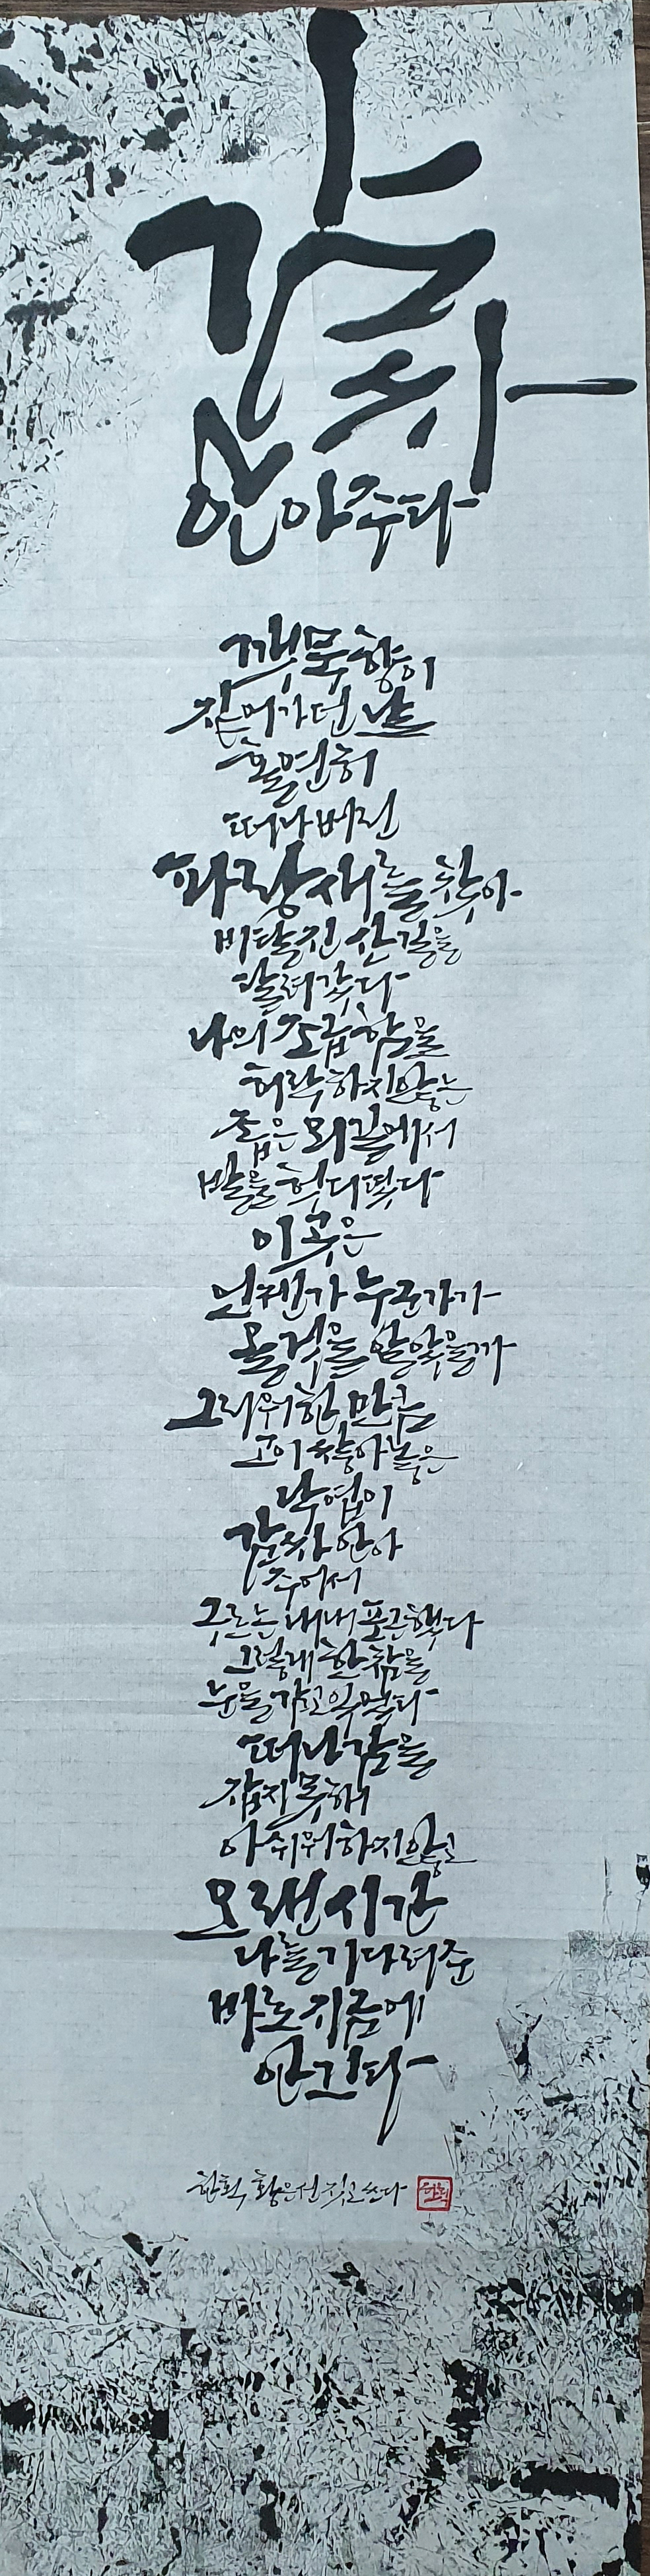 감싸
안아주다
깻묵향이
짙어가던 날
홀연히
떠나버린
파랑새를 찾아
비탈진 산길을
달려갔다
나의 조급함을
허락하지않는
좁은 외길에서
발을 헛디뎠다
이곳은
언젠가 누군가가
올것을 알았을까
그리워한 만큼
고이 쌓아놓은
낙엽이
감싸 안아
주어서
구르는내내 포근했다
그렇게 한참을
눈을 감고 있었다
떠나감을
잡지 못해
아쉬워하지않고
오랜시간
나를 기다려준
바로 지금에
안긴다
한획 황은선 짓고 쓰다
한획